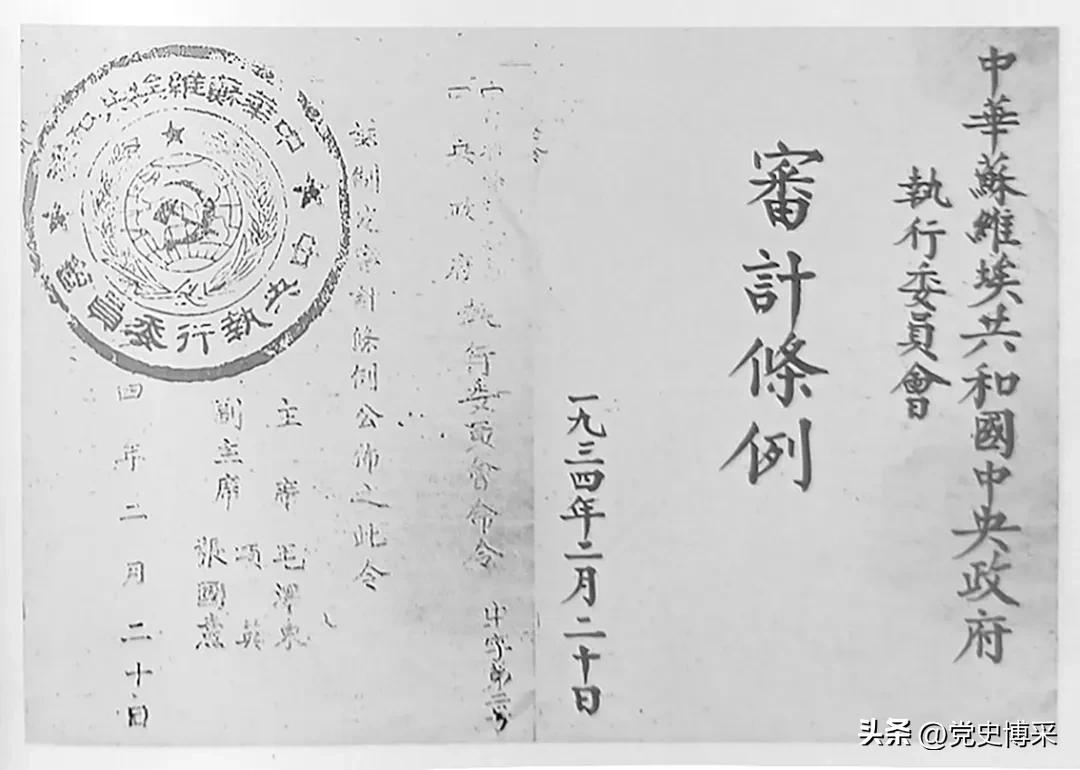 中華蘇維埃共和國中央政府
執行委員會
審計條例
一九三四年二月二十日
央政府執行委員會命令
中字第二号
茲制定審計條例公佈之此令
主席 毛澤東
副主席 項英
張國燾
四年二月二十日
中華蘇維埃共和國
中央執行委員會
头条 @党史博采